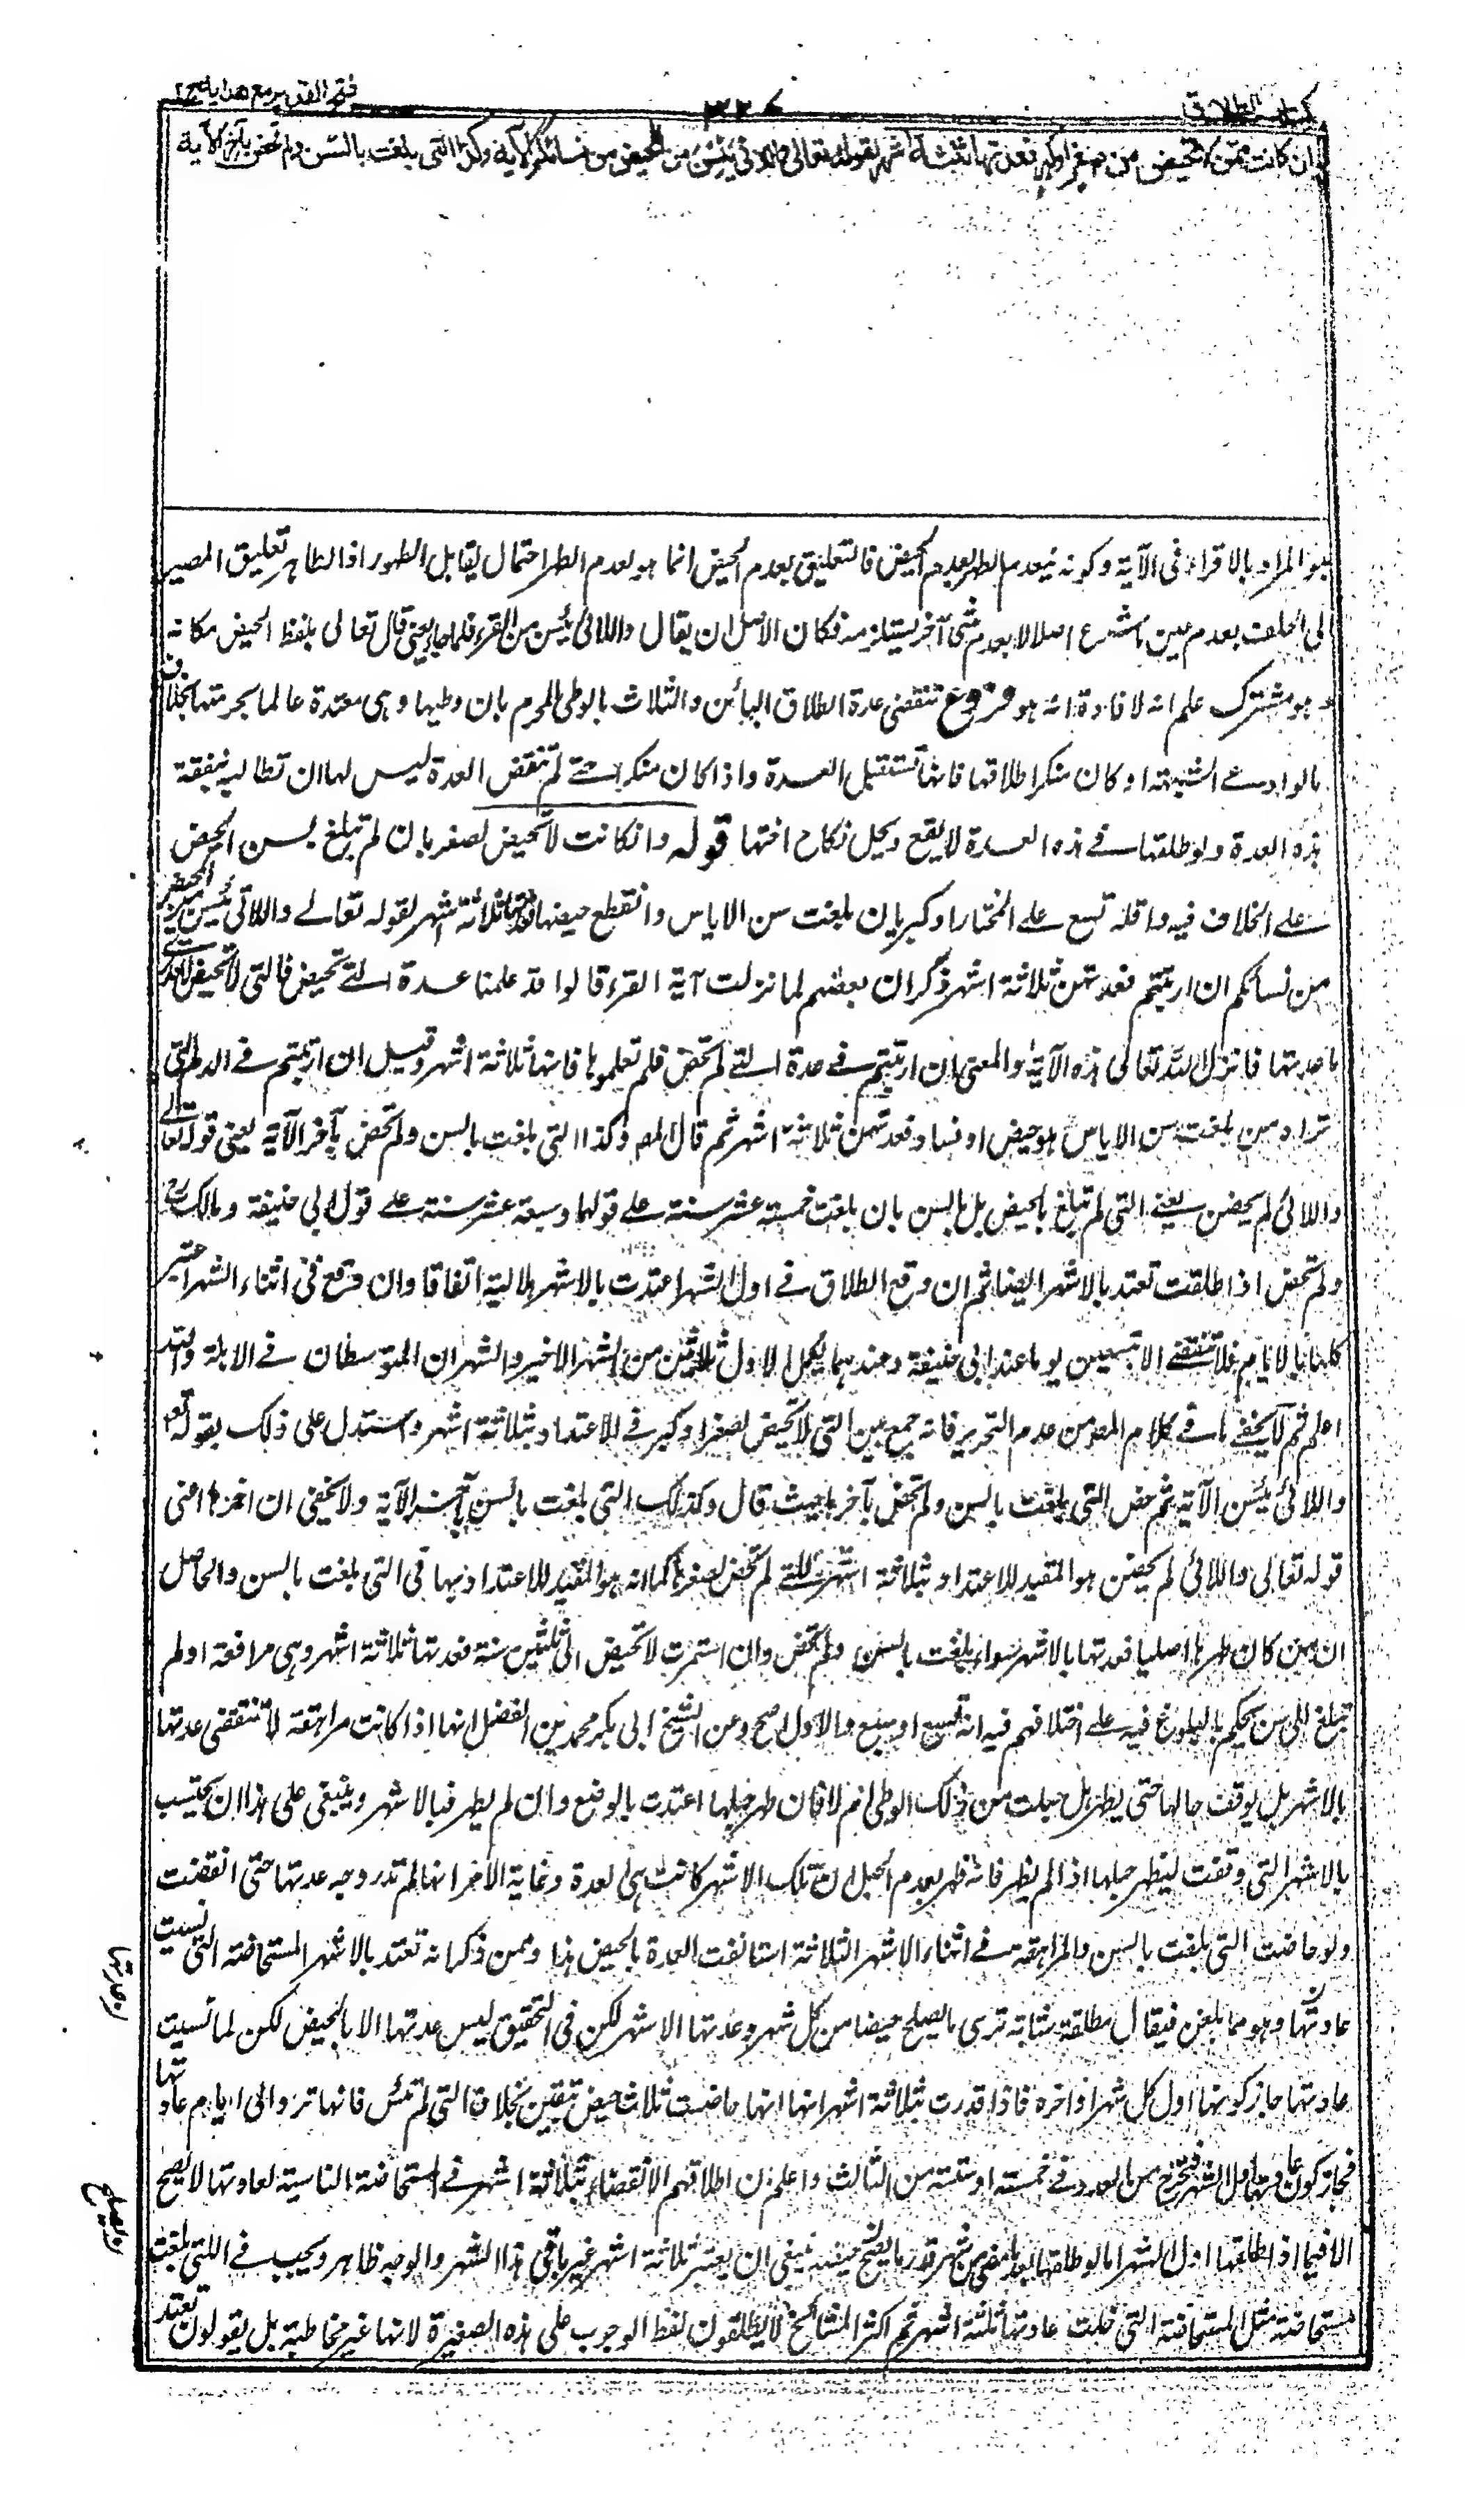 كتاب الطلاق
٣٢٧
فتح القدير مع هدايه ج٢
وان كانت ممن لا تحيض من صغر او كبر فعدتها ثلثة اشهر لقوله تعالى واللائي يئسن من المحيض من نسائكم الآية وكذا التي بلغت بالسن ولم تحض بآخر الآية
هو المراد بالاقراء في الآية وكونه لعدم الطهر بعدم الحيض فالتعليق بعدم الحيض انما هو لعدم الطهر احتمال يقابل الظهور اذ الظاهر تعليق المصير
الى الخلف بعدم عين الشرع اصلا لا بعدم شيء آخر يستلزمه فكان الاصل ان يقال واللائي يئسن من القرء فلما جاء يعني قال تعالى بلفظ الحيض مكانه
وهو مشترك علم انه لافادة انه هو فروع تنقضي عدة الطلاق البائن والثلاث بالوطي المحرم بان وطيها وهي معتدة عالما بحرمتها بخلاف
ما لو ادعى الشبهة او كان منكرا طلاقها فانها تستقبل العدة واذا كان منكرا حتى لم تنقض العدة ليس لها ان تطالبه بنفقة
هذه العدة ولو طلقها في هذه العدة لا يقع ويحل نكاح اختها قوله وان كانت لا تحيض لصغر بان لم تبلغ بسن الحيض
على الخلاف فيه واقله تسع على المختار او كبر بان بلغت سن الاياس وانقطع حيضها فعدتها ثلاثة اشهر لقوله تعالى واللائي يئسن من المحيض
من نسائكم ان ارتبتم فعدتهن ثلاثة اشهر ذكر ان بعضهم لما نزلت آية القرء قالوا قد علمنا عدة التي تحيض فالتي لا تحيض لا ندري
ما عدتها فانزل الله تعالى هذه الآية والمعنى ان ارتبتم في عدة التي لم تحض فلم تعلموها فانها ثلاثة اشهر وقيل ان ارتبتم في الدم التي
تراه من بلغت سن الاياس هو حيض او فساد فعدتهن ثلاثة اشهر ثم قال المصـ وكذا التي بلغت بالسن ولم تحض بآخر الآية يعني قوله تعالى
واللائي لم يحضن يعني التي لم تبلغ بالحيض بل بالسن بان بلغت خمسة عشر سنة على قولهما وسبعة عشر سنة على قول ابي حنيفة ومالك رح
ولم تحض اذا طلقت تعتد بالاشهر ايضا ثم ان وقع الطلاق في اول الشهر اعتدت بالاشهر الهلالية اتفاقا وان وقع في اثناء الشهر اعتبر
كلها بالايام فلا تنقضي الا بتسعين يوما عند ابي حنيفة وعندهما يكمل الاول ثلاثين من الشهر الاخير والشهران المتوسطان في الاهلة والله
اعلم ثم لا يخفى ما في كلام المصـ من عدم التحرير فانه جمع بين التي لا تحيض لصغر او كبر في الاعتداد بثلاثة اشهر واستدل على ذلك بقوله تعـ
واللائي يئسن الآية ثم خص التي بلغت بالسن ولم تحض بآخرها حيث قال وكذلك التي بلغت بالسن بآخر الآية ولا يخفى ان اخرها اعني
قوله تعالى واللائي لم يحضن هو المفيد للاعتداد بثلاثة اشهر للتي لم تحض لصغرها كما انه هو المفيد للاعتداد بها في التي بلغت بالسن والحاصل
ان من كان طهرها اصليا فعدتها بالاشهر سواء بلغت بالسن ولم تحض وان استمرت لا تحيض الى ثلثين سنة فعدتها ثلاثة اشهر وهي مراهقة او لم
تبلغ الى سن يحكم بالبلوغ فيه على اختلافهم فيه انه تسع او سبع والاول اصح وعن الشيخ ابي بكر محمد بن الفضل انها اذا كانت مراهقة لا تنقضي عدتها
بالاشهر بل يوقف حالها حتى يظهر هل حبلت من ذلك الوطي ام لا فان ظهر حبلها اعتدت بالوضع وان لم يظهر فبالاشهر وينبغي على هذا ان يحتسب
بالاشهر التي وقفت ليظهر حبلها اذا لم يظهر فانه ظهر بعدم الحبل ان تلك الاشهر كانت هي العدة وغاية الامر انها لم تدر وجه عدتها حتى انقضت
ولو حاضت التي بلغت بالسن والمراهقة في اثناء الاشهر الثلاثة استانفت العدة بالحيض هذا وممن ذكر انه تعتد بالاشهر المستحاضة التي نسيت
عادتها وهو مما يلغز فيقال مطلقة شابة ترى ما يصلح حيضا من كل شهر وعدتها الاشهر لكن في التحقيق ليس عدتها الا بالحيض لكن لما نسيت
عادتها جاز كونها اول كل شهر او اخره فاذا قدرت بثلاثة اشهر انها حاضت ثلاث حيض بيقين بخلاف التي لم تنس فانها ترد الى ايام عادتها
فجاز كون عادتها اول الشهر فتخرج من العدة في خمسة او ستة من الثالث واعلم ان اطلاقهم الانقضاء بثلاثة اشهر في المستحاضة الناسية لعادتها لا يصح
الا فيما اذا طلقها اول الشهر اما لو طلقها بعد ما مضى من شهر قدر ما يصح حيضة ينبغي ان يعتبر ثلاثة اشهر غير باقي هذا الشهر والوجه ظاهر ويجب في التي بلغت
مستحاضة مثل المستحاضة التي ضلت عادتها ثلثة اشهر ثم اكثر المشائخ لا يطلقون لفظ الوجوب على هذه الصغيرة لانها غير مخاطبة بل يقولون تعتد